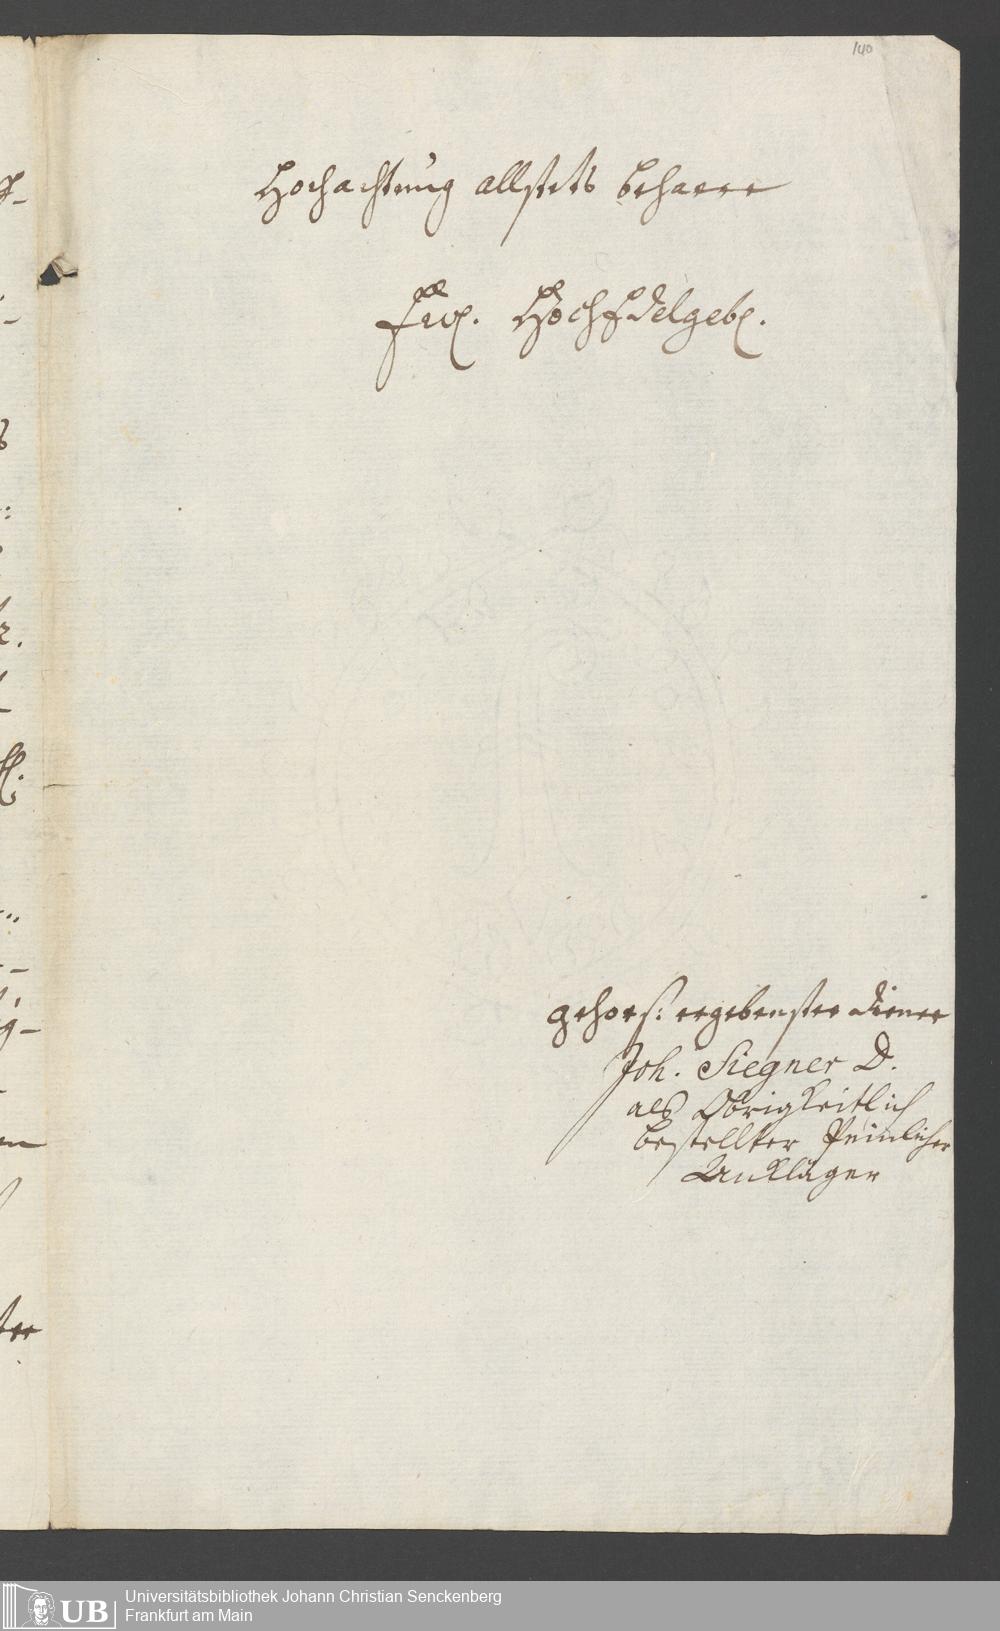 140
Hochachtung allstets beharre
Ew. HochEdelgeb.
gehors: ergebenster Diener
Joh. Siegner D.
als Obrigkeitlich
bestellter Peinlicher
Ankläger
Universitätsbibliothek Johann Christian Senckenberg
UB Frankfurt am Main